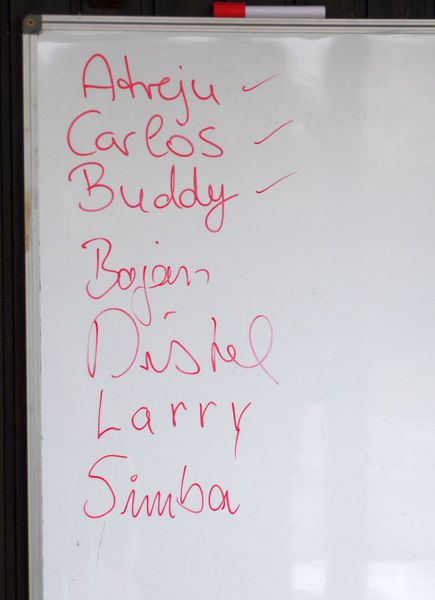 Atreju ✓
Carlos ✓
Buddy ✓
Bojan
Distel
Larry
Simba